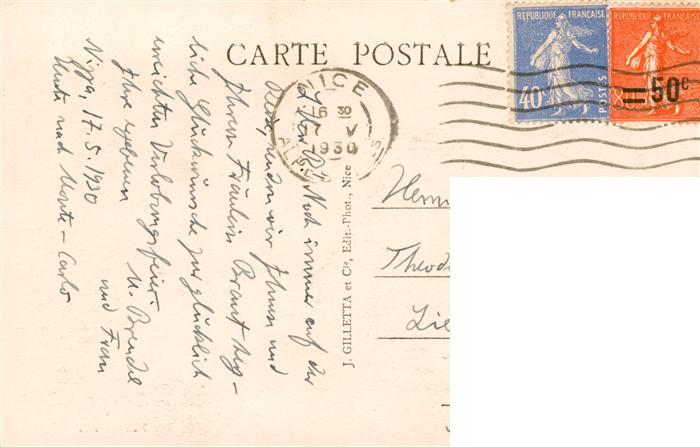 CARTE POSTALE
REPUBLIQUE FRANÇAISE
40c
POSTES
REPUBLIQUE FRANÇAISE
50c
NICE
16 30
17 V
1930
J. GILLETTA et Cie, Edit.-Phot., Nice
Noch immer auf der
Reise, senden wir Ihnen und
Ihrem Fräulein Braut herz-
liche Glückwünsche zur glücklich
erreichten Verlobungsfeier
Ihre ergebenen
M. Brendel
und Frau
Nizza, 17.5.1930
Heute nach Monte-Carlo
Herrn
Theod